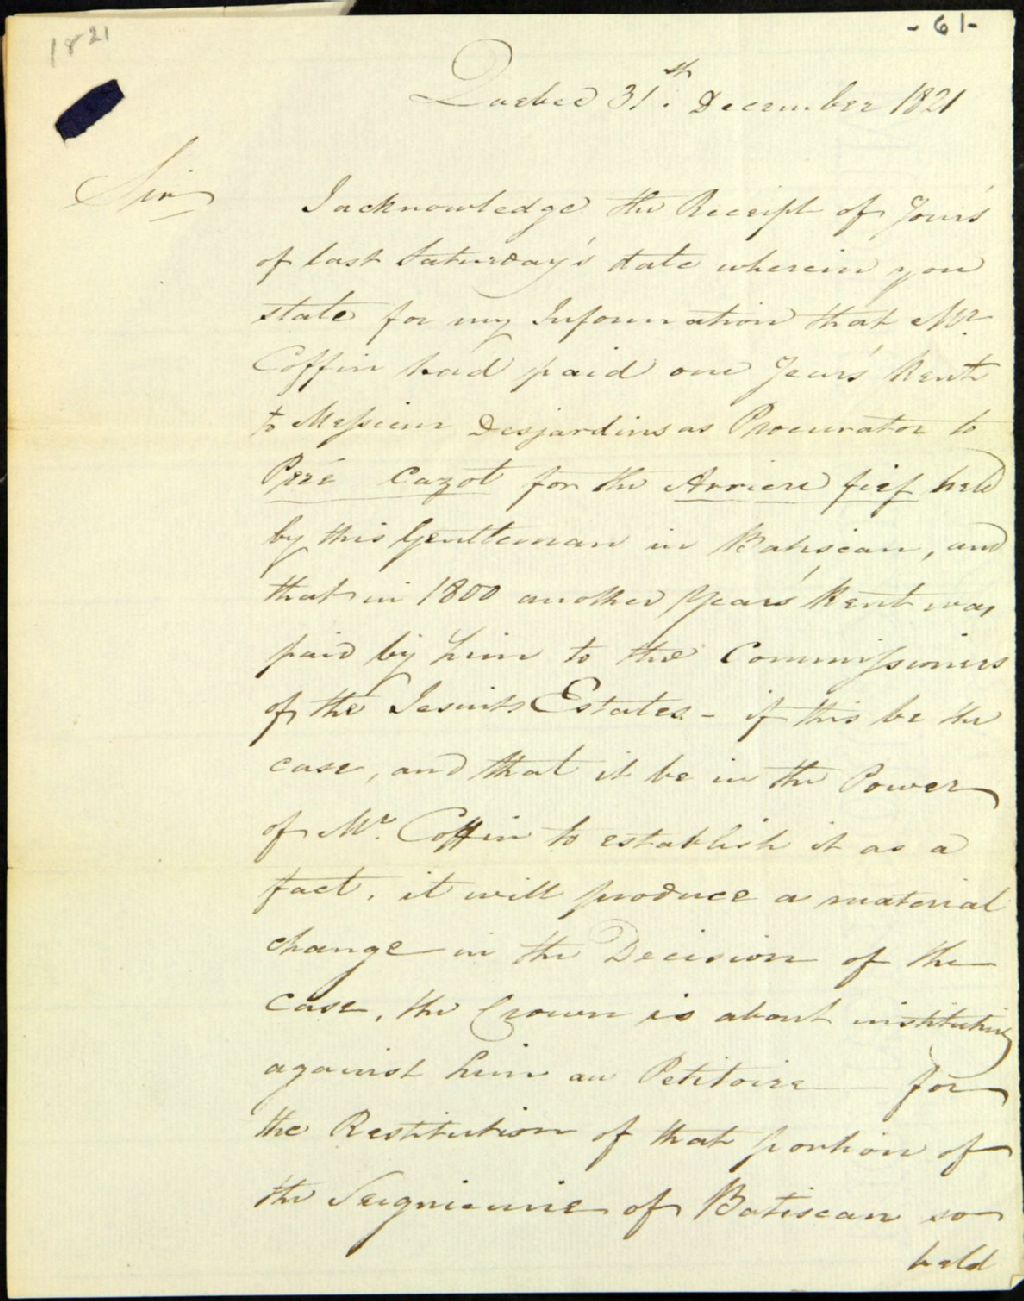 1821
- 61 -
Quebec 31.th December 1821
Sir
I acknowledge the Receipt of Yours
of last Saturday's date wherein you
state for my Information that Mr.
Coffin had paid one Year's Rent
to Messieur Desjardins as Procurator to
Père Cazot for the Arriere fief held
by this Gentleman in Batiscan, and
that in 1800 another Year's Rent was
paid by him to the Commissioners
of the Jesuits Estates - if this be the
case, and that it be in the Power
of Mr. Coffin to establish it as a
fact, it will produce a material
change in the Decision of the
case, the Crown is about instituting
against him au Petitoire for
the Restitution of that portion of
the Seigneurie of Batiscan so
held